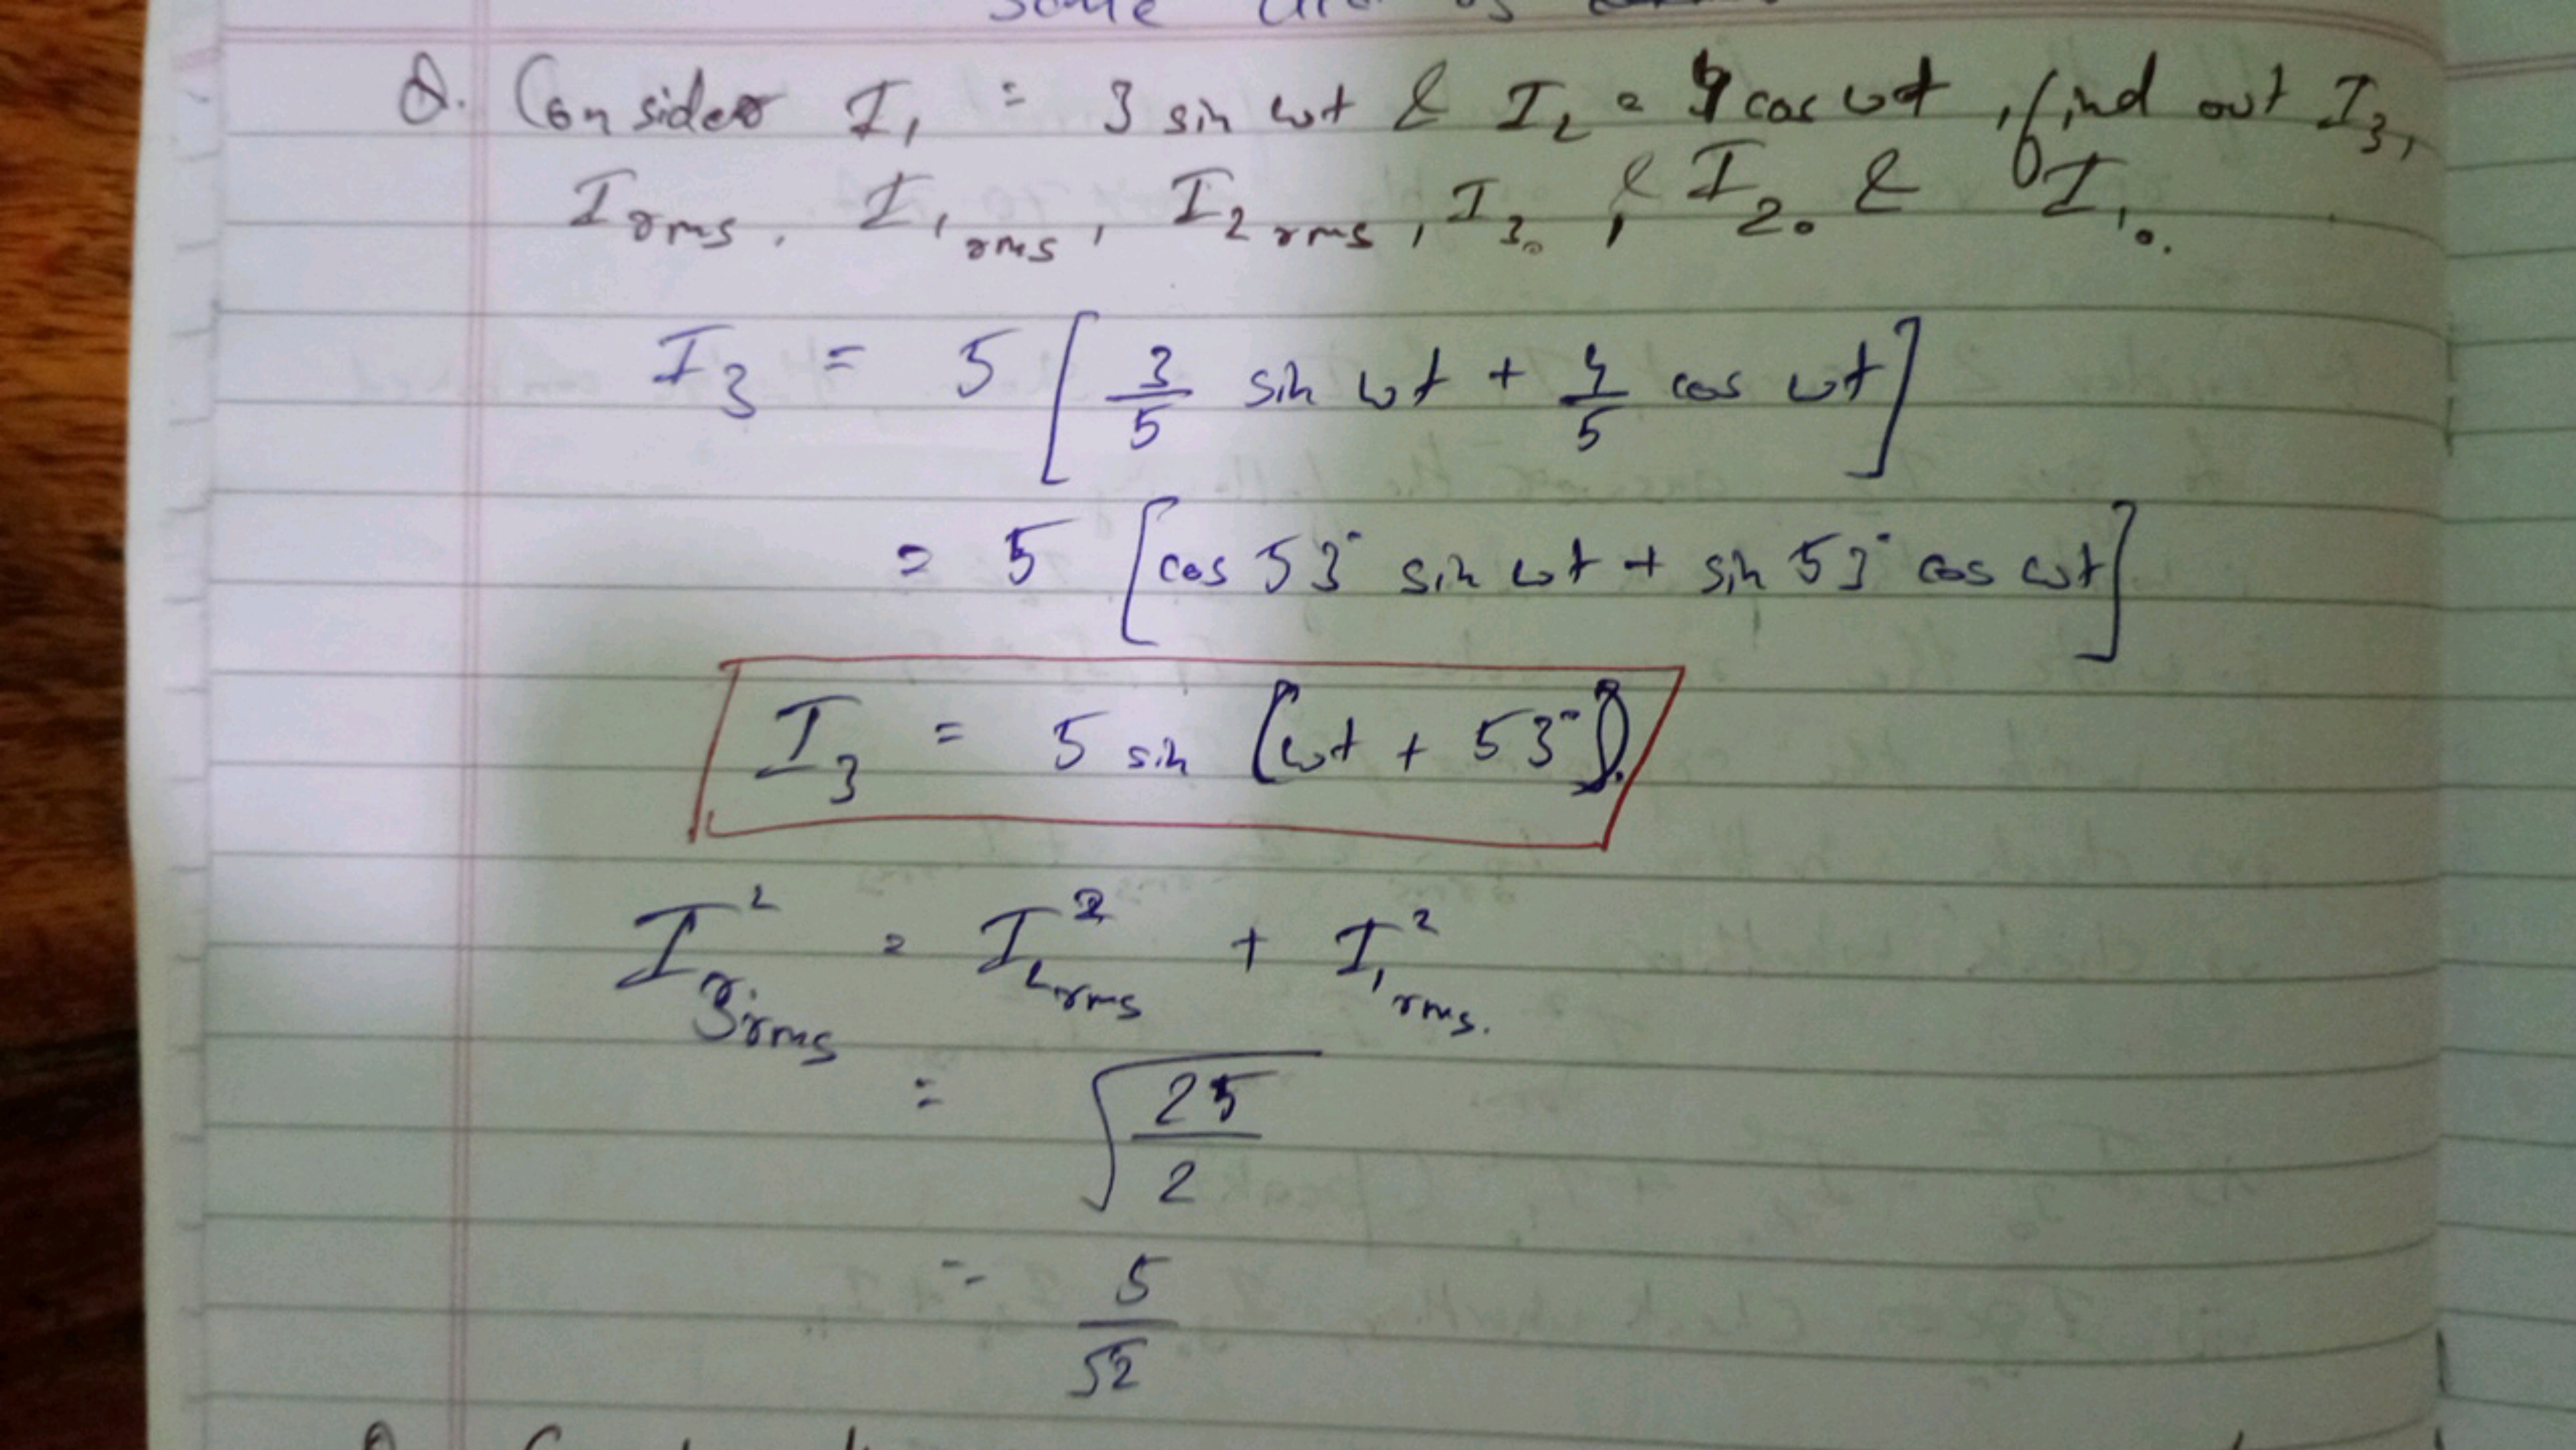 Q. Consider I₁ = 3 sin ωt & I₂ = 4 cos ωt, find out I₃,
I rms, I₁ rms, I₂ rms, I₃₀, & I₂₀ & I₁₀.
I₃ = 5 [3/5 sin ωt + 4/5 cos ωt]
= 5 [cos 53° sin ωt + sin 53° cos ωt]
I₃ = 5 sin (ωt + 53°).
I²₃rms = I₂²rms + I₁²rms.
= √(25/2)
= 5/√2